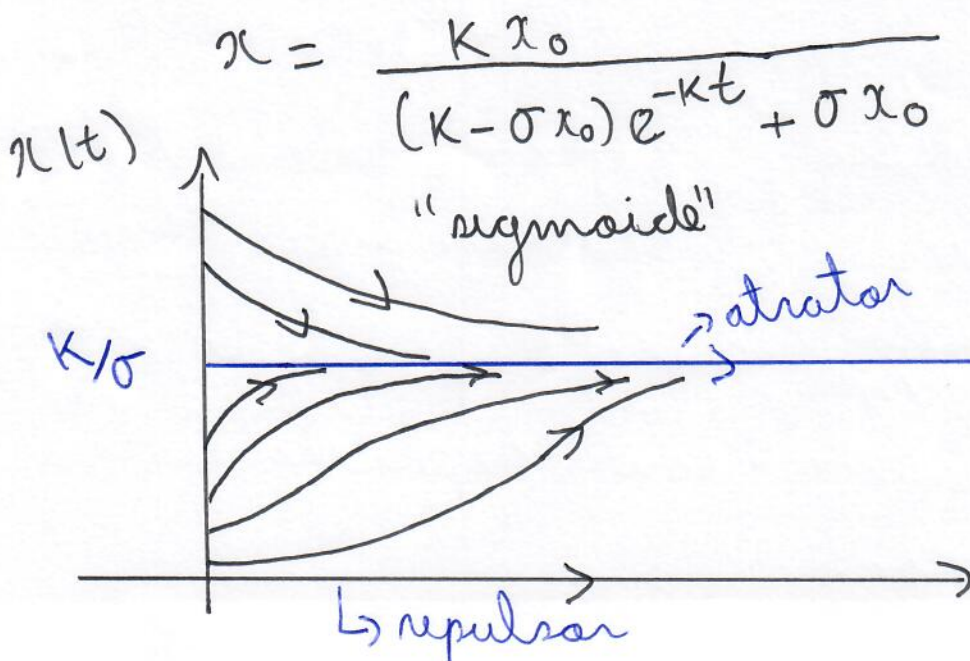 x = K x₀
(K - σ x₀) e^{-Kt} + σ x₀
x(t)
"sigmoide"
atrator
K/σ
↳ repulsor